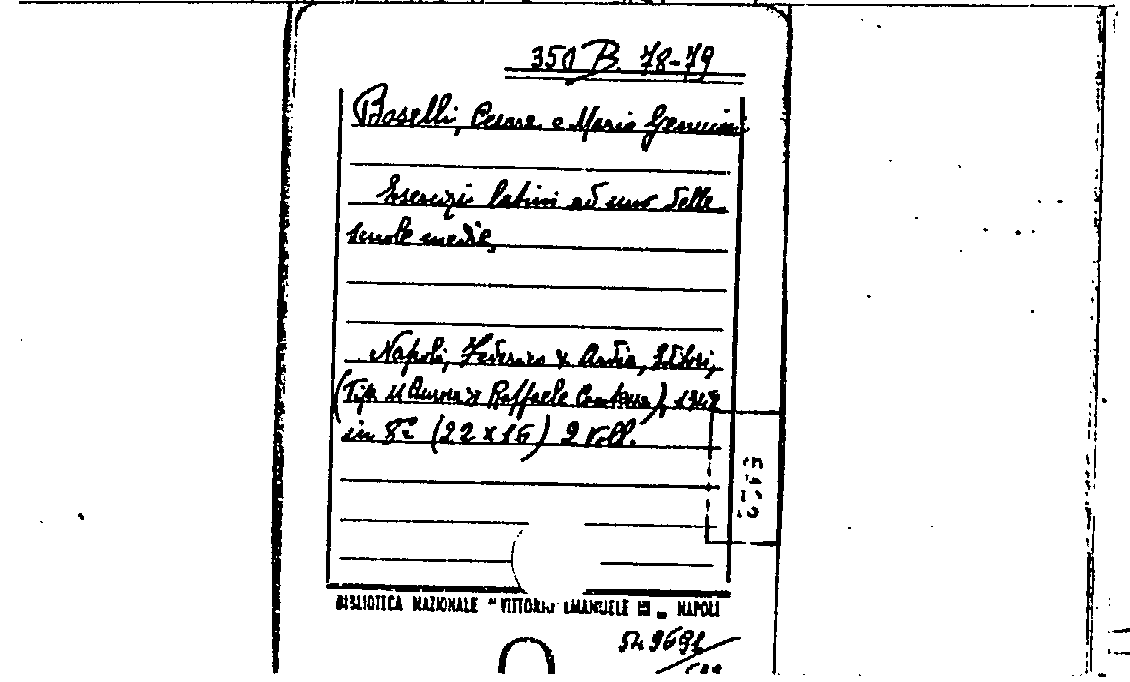 350 B. 78-79
Boselli, Cesare e Mario Genuini
Esercizi latini ad uso delle
scuole medie,
Napoli, Federico & Ardia, Editori,
(Tip. Raffaele Contessa), 1949
in 8° (22 x 16) 2 voll.
BIBLIOTECA NAZIONALE "VITTORIO EMANUELE III" NAPOLI
549691